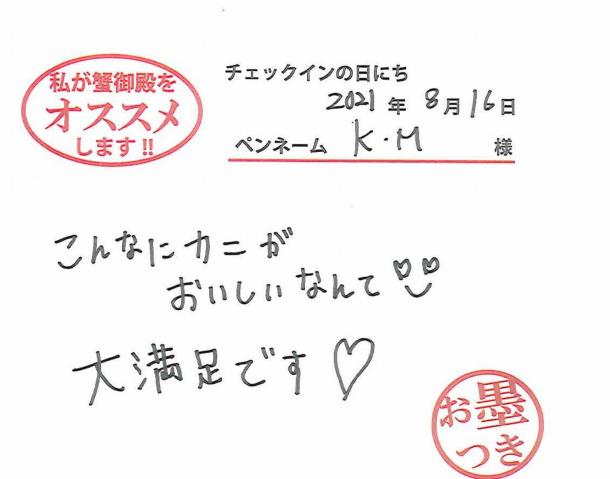 私が蟹御殿を
オススメ
します!!
チェックインの日にち
2021年8月16日
ペンネーム K・M 様
こんなにカニが
おいしいなんて
大満足です♡
お墨
つき